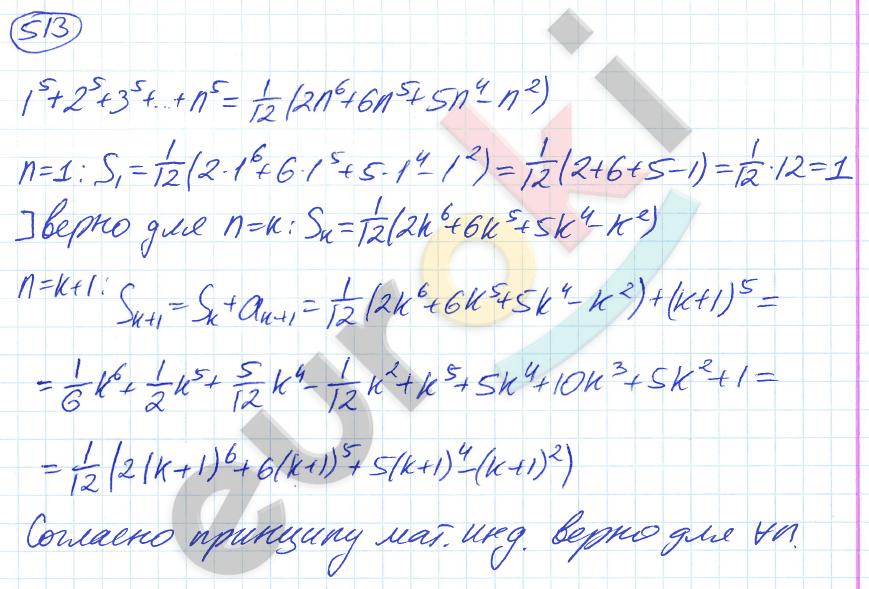 513
1⁵+2⁵+3⁵+...+n⁵ = 1/12 (2n⁶+6n⁵+5n⁴-n²)
n=1: S₁ = 1/12 (2·1⁶+6·1⁵+5·1⁴-1²) = 1/12 (2+6+5-1) = 1/12 · 12 = 1
] верно для n=k: Sₖ = 1/12 (2k⁶+6k⁵+5k⁴-k²)
n=k+1: Sₖ₊₁ = Sₖ + aₖ₊₁ = 1/12 (2k⁶+6k⁵+5k⁴-k²)+(k+1)⁵ =
= 1/6 k⁶ + 1/2 k⁵ + 5/12 k⁴ - 1/12 k² + k⁵ + 5k⁴ + 10k³ + 5k² + 1 =
= 1/12 (2(k+1)⁶+6(k+1)⁵+5(k+1)⁴-(k+1)²)
Согласно принципу мат. инд. верно для ∀n.
euroki